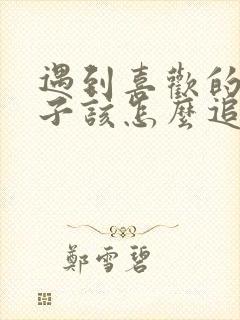 遇到喜歡的
子該怎麼追
鄭雪碧